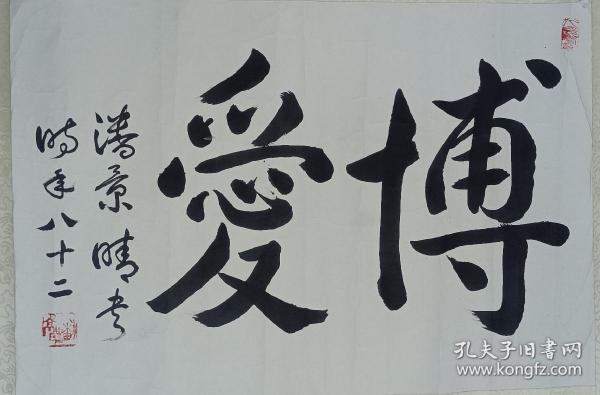 博愛
潘景晴书
時年八十二
孔夫子旧書网
www.kongfz.com